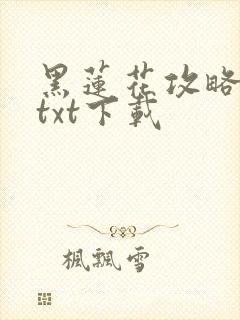 黑蓮花攻略
txt下載
楓飄雪